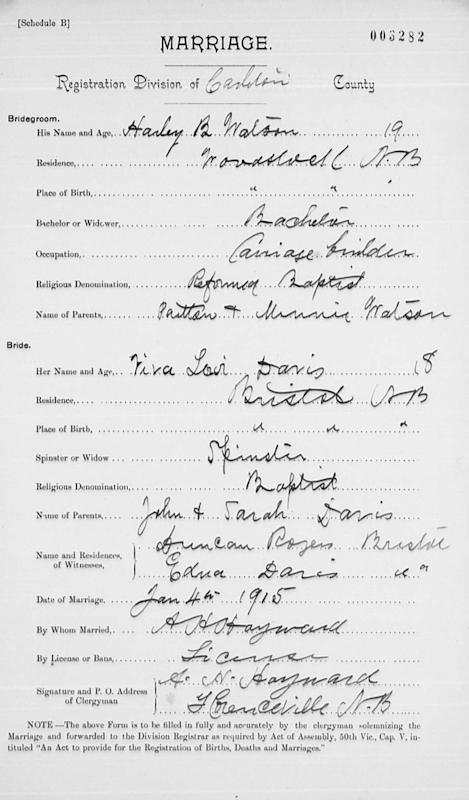 [Schedule B]
003282
MARRIAGE.
Registration Division of Carleton County
Bridegroom.
His Name and Age, Harley B Watson 19
Residence, Woodstock N.B
Place of Birth, " " "
Bachelor or Widower, Bachelor
Occupation, Carriage builder
Religious Denomination, Reformed Baptist
Name of Parents, & Minnie Watson
Bride.
Her Name and Age, Viva Davis 18
Residence, Bristol N B
Place of Birth, " " "
Spinster or Widow Spinster
Religious Denomination, Baptist
Name of Parents, John & Sarah Davis
Name and Residences, of Witnesses, Duncan Rogers Bristol
Edna Davis " "
Date of Marriage, Jan 4th 1915
By Whom Married, A H Hayward
By License or Bans, License
Signature and P. O. Address of Clergyman A. H. Hayward
Florenceville N.B
NOTE—The above Form is to be filled in fully and accurately by the clergyman solemnizing the
Marriage and forwarded to the Division Registrar as required by Act of Assembly, 50th Vic., Cap. V, in-
tituled "An Act to provide for the Registration of Births, Deaths and Marriages."